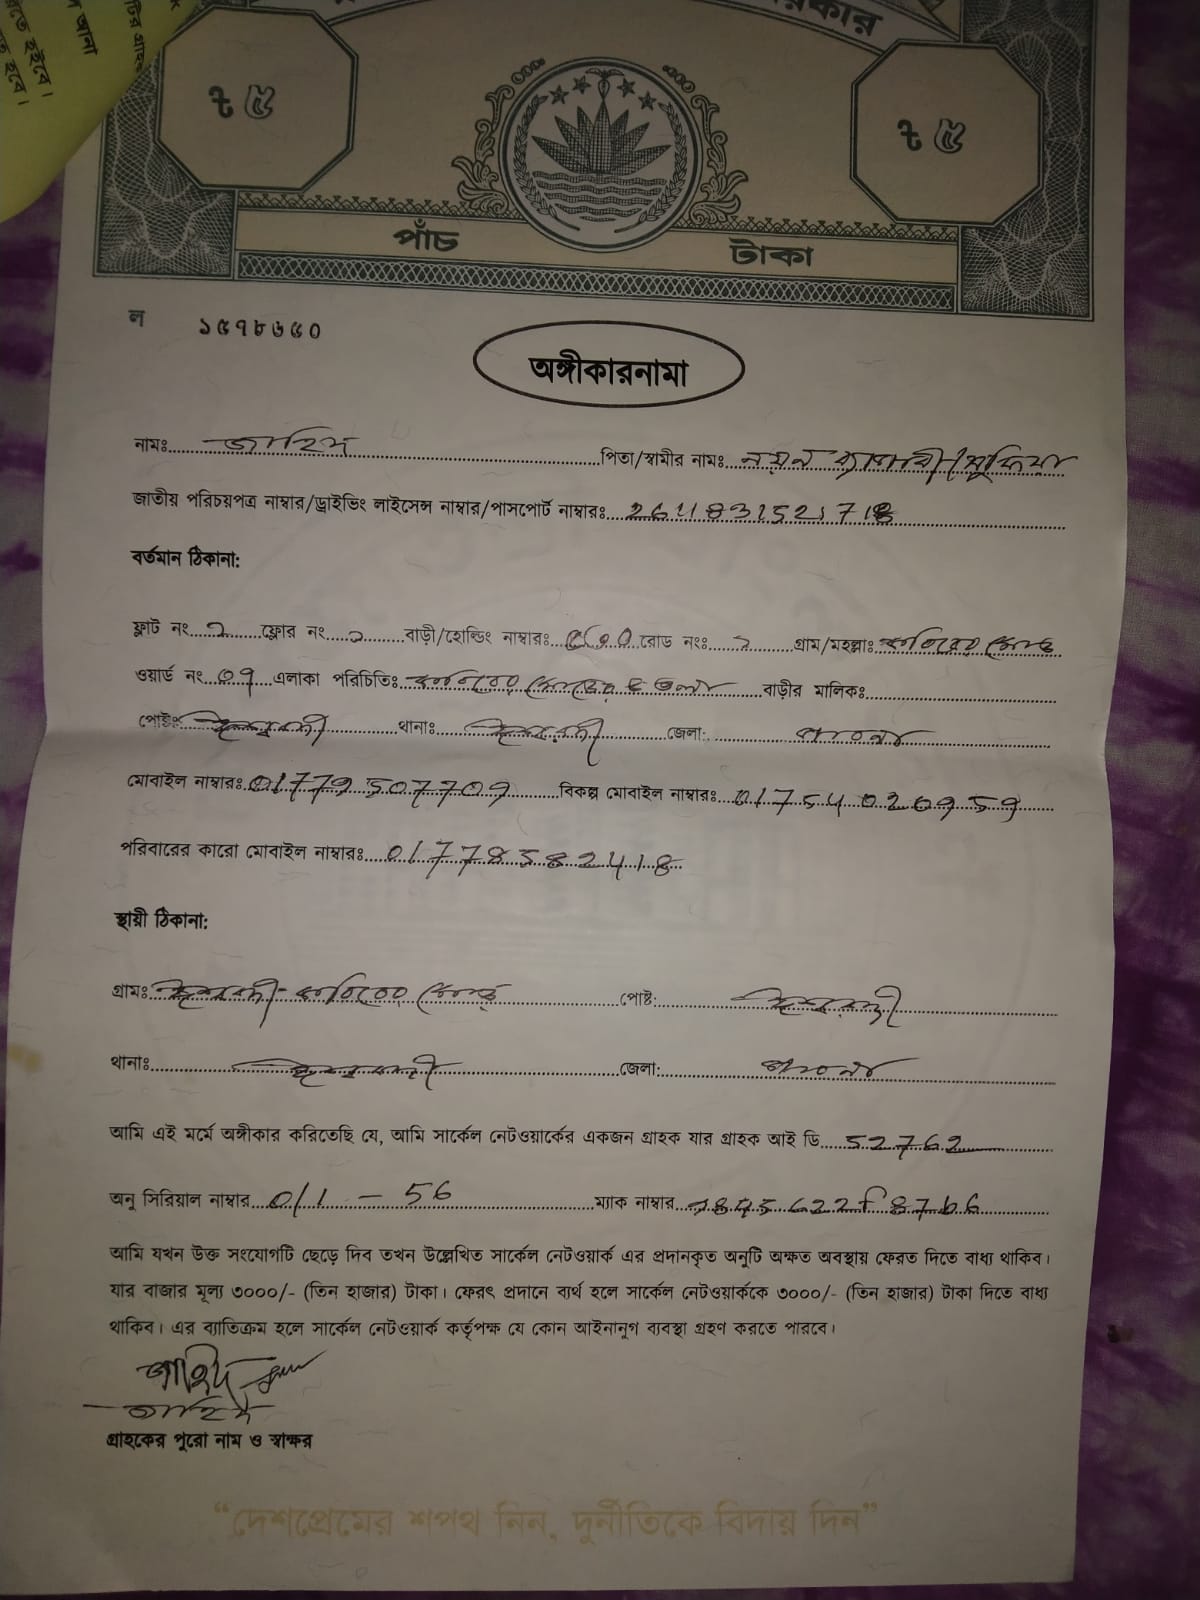 রকার
টির গ্রাহক
ল আনা
রতে হইবে।
ত হবে।
ট ৫
ট ৫
পাঁচ
টাকা
ল ১৫৭৮৬৫০
অঙ্গীকারনামা
নামঃ জাহিদ পিতা/স্বামীর নামঃ নয়ন ব্যাপারী/সুফিয়া
জাতীয় পরিচয়পত্র নাম্বার/ড্রাইভিং লাইসেন্স নাম্বার/পাসপোর্ট নাম্বারঃ
বর্তমান ঠিকানা:
ফ্লাট নং ২ ফ্লোর নং ২ বাড়ী/হোল্ডিং নাম্বারঃ রোড নংঃ ২ গ্রাম/মহল্লাঃ
ওয়ার্ড নং 09 এলাকা পরিচিতিঃ বাড়ীর মালিকঃ
পোষ্টঃ ঈশ্বরদী থানাঃ ঈশ্বরদী জেলা: পাবনা
মোবাইল নাম্বারঃ 01779507709 বিকল্প মোবাইল নাম্বারঃ 01754026959
পরিবারের কারো মোবাইল নাম্বারঃ 01778582418
স্থায়ী ঠিকানা:
গ্রামঃ ঈশ্বরদী পোষ্ট: ঈশ্বরদী
থানাঃ ঈশ্বরদী জেলা: পাবনা
আমি এই মর্মে অঙ্গীকার করিতেছি যে, আমি সার্কেল নেটওয়ার্কের একজন গ্রাহক যার গ্রাহক আই ডি 52762
অনু সিরিয়াল নাম্বার 0/1 - 56 ম্যাক নাম্বার
আমি যখন উক্ত সংযোগটি ছেড়ে দিব তখন উল্লেখিত সার্কেল নেটওয়ার্ক এর প্রদানকৃত অনুটি অক্ষত অবস্থায় ফেরত দিতে বাধ্য থাকিব।
যার বাজার মূল্য ৩০০০/- (তিন হাজার) টাকা। ফেরৎ প্রদানে ব্যর্থ হলে সার্কেল নেটওয়ার্ককে ৩০০০/- (তিন হাজার) টাকা দিতে বাধ্য
থাকিব। এর ব্যাতিক্রম হলে সার্কেল নেটওয়ার্ক কর্তৃপক্ষ যে কোন আইনানুগ ব্যবস্থা গ্রহণ করতে পারবে।
জাহিদ
জাহিদ
গ্রাহকের পুরো নাম ও স্বাক্ষর
“দেশপ্রেমের শপথ নিন, দুর্নীতিকে বিদায় দিন”